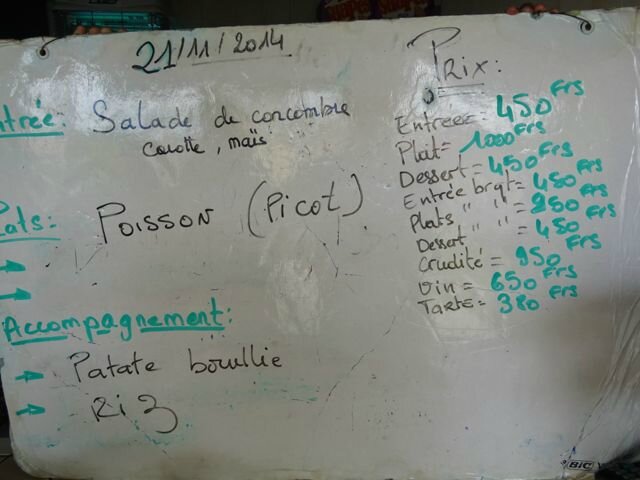 21/11/2014
ntrée: Salade de concombre
carotte, maïs
lats: Poisson (Picot)
Accompagnement:
→ Patate bouillie
→ Riz
Prix:
Entrées = 450 Frs
Plat = 1000 Frs
Dessert = 450 Frs
Entrée brqt = 450 Frs
Plats " " = 850 Frs
Dessert " " = 450 Frs
Crudité = 950 Frs
Vin = 650 Frs
Tarte = 380 Frs
BIC